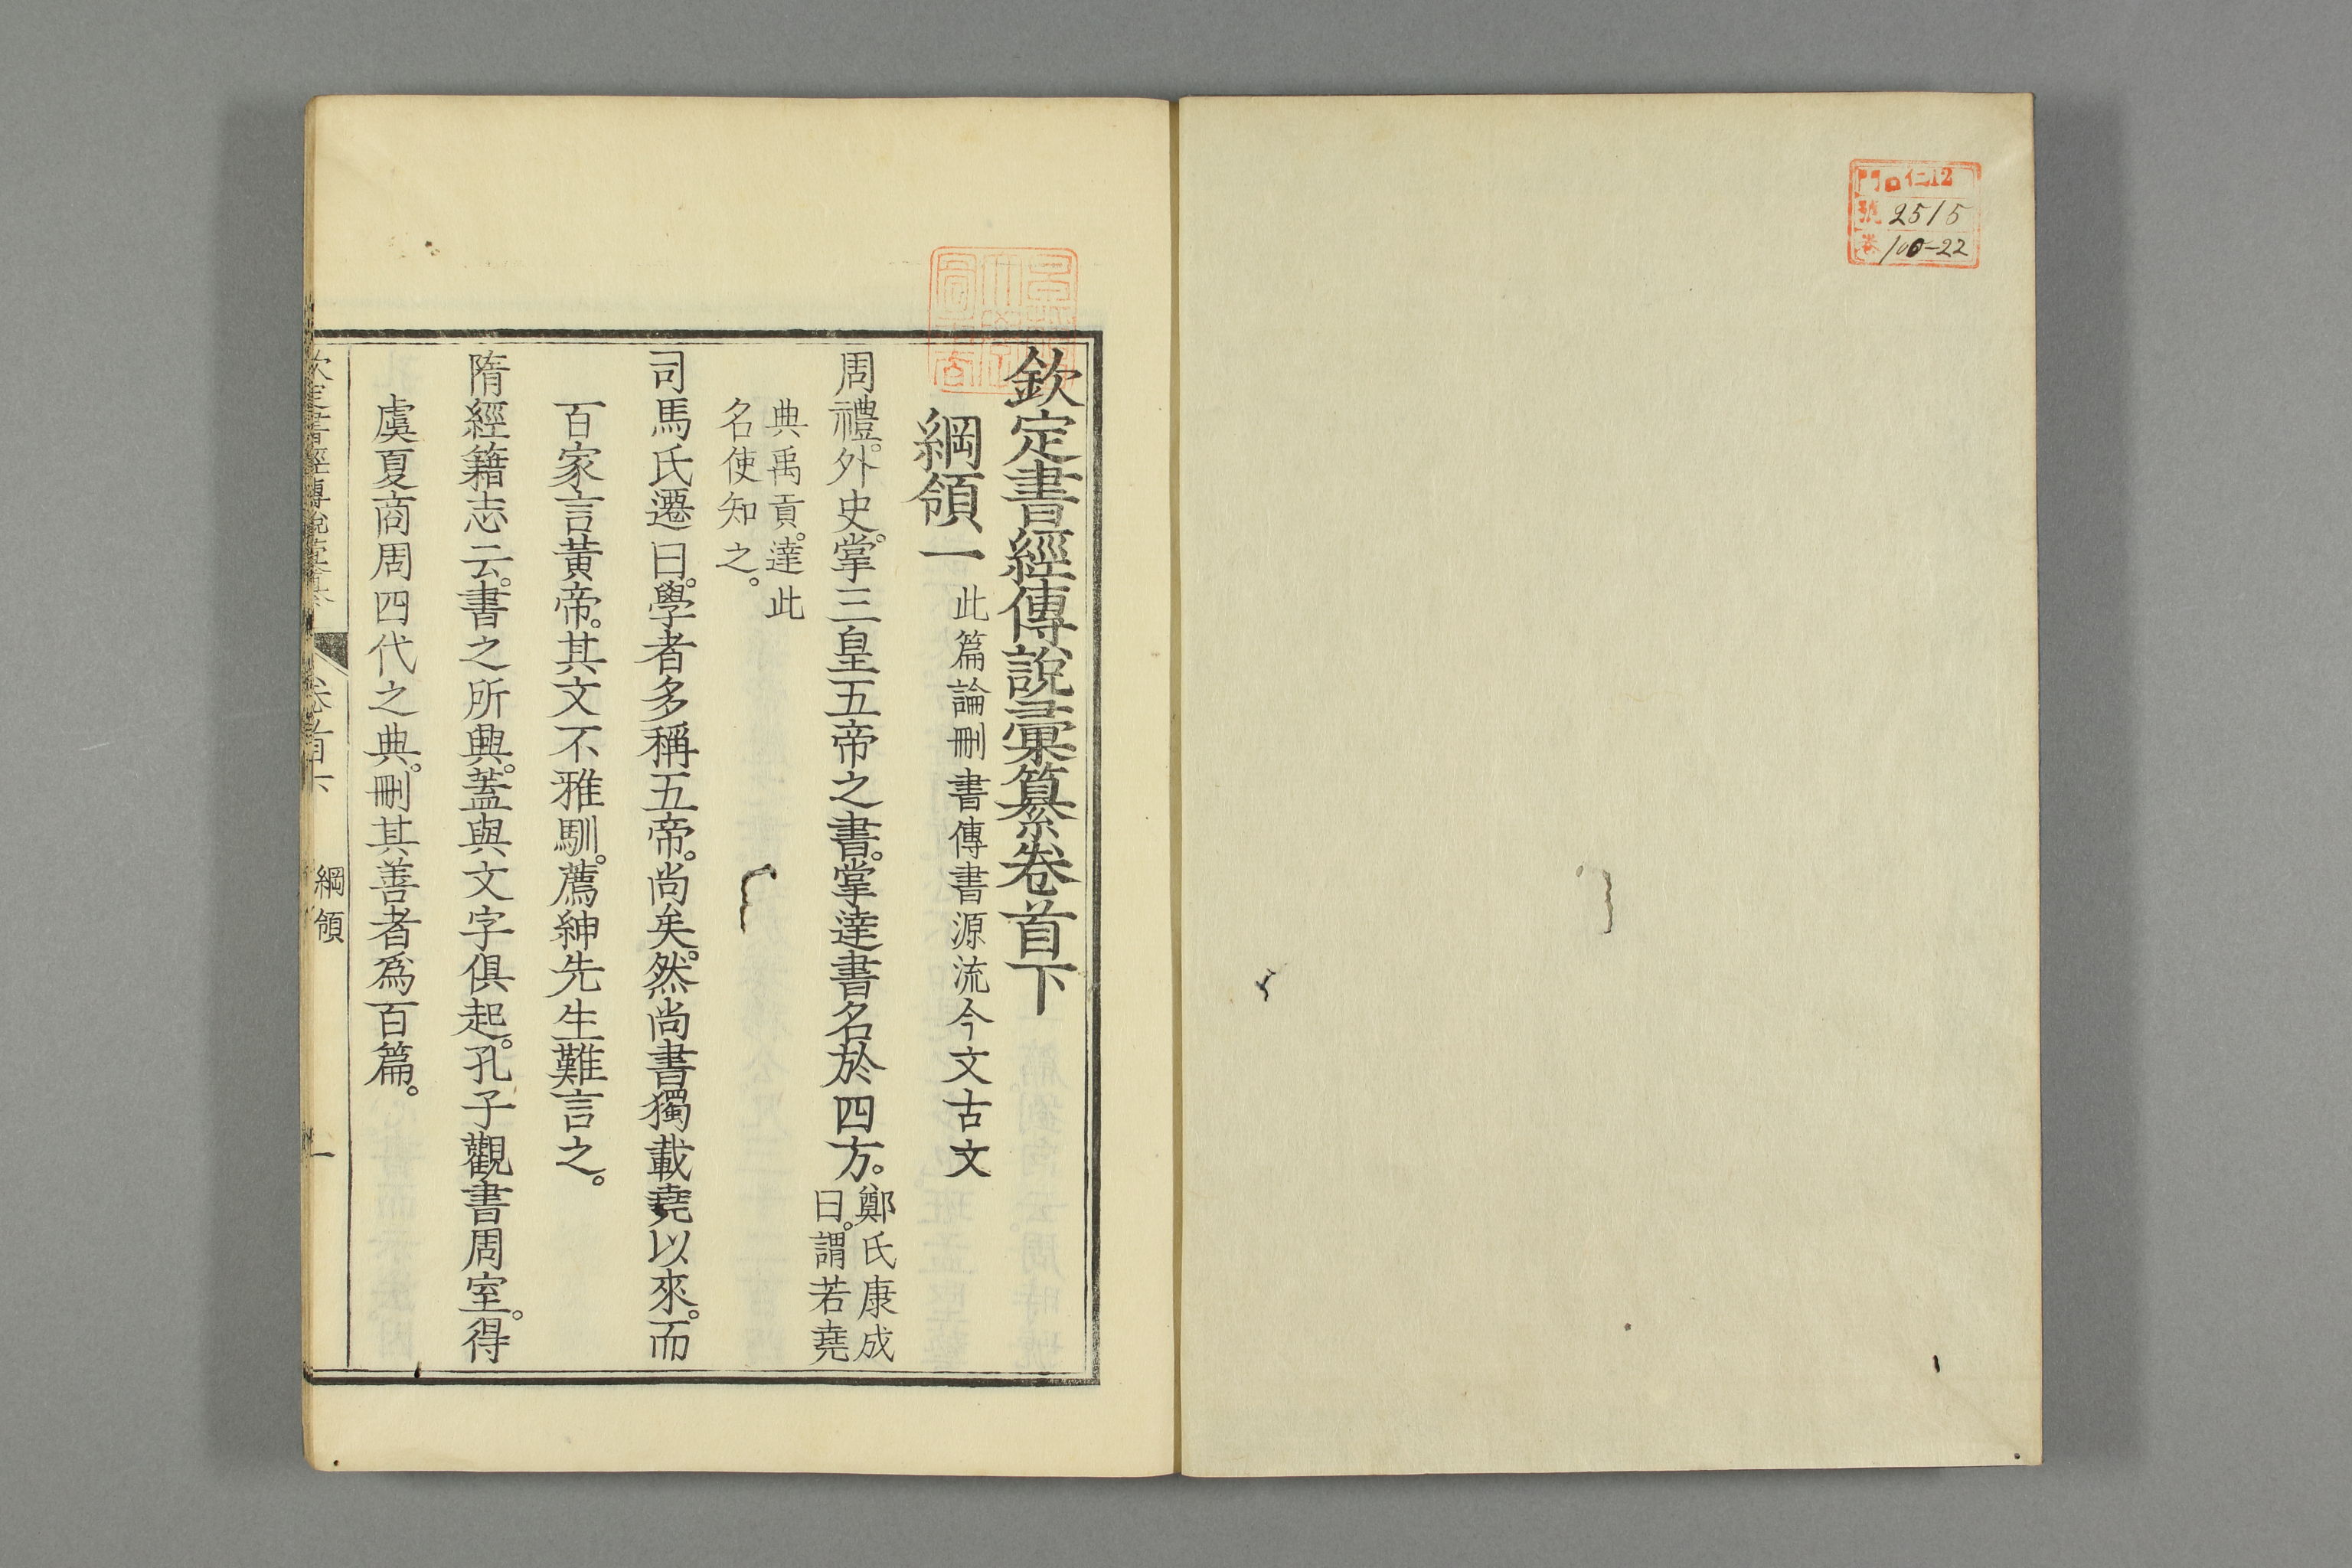 門 仁12
號 2515
卷 100-22
欽定書經傳說彙纂卷首下
綱領一 此篇論刪書傳書源流今文古文
周禮。外史。掌三皇五帝之書。掌達書名於四方。鄭氏康成
曰。謂若堯
典禹貢。達此
名使知之。
司馬氏遷曰。學者多稱五帝。尚矣。然尚書獨載堯以來。而
百家言黃帝。其文不雅馴。薦紳先生難言之。
隋經籍志云。書之所興。蓋與文字俱起。孔子觀書周室。得
虞夏商周四代之典。刪其善者爲百篇。
欽定書經傳說彙纂 卷首下 綱領 一